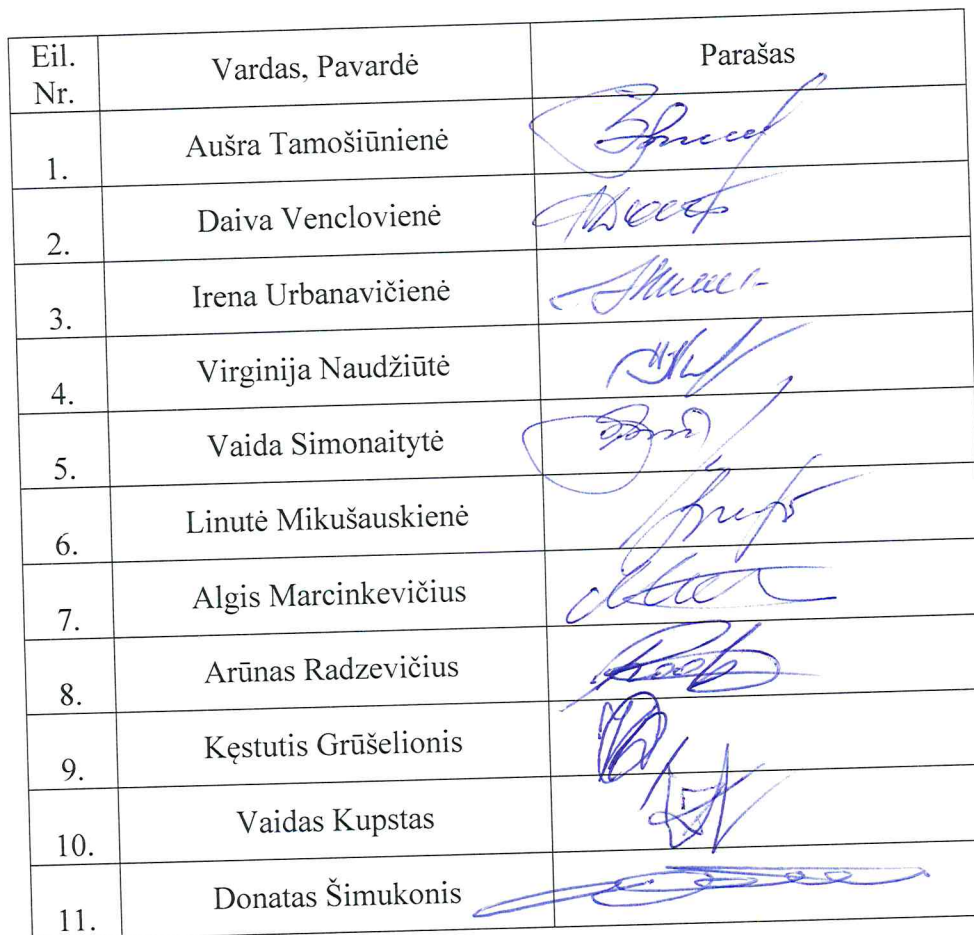 Eil. Nr. Vardas, Pavardė Parašas
1. Aušra Tamošiūnienė
2. Daiva Venclovienė
3. Irena Urbanavičienė
4. Virginija Naudžiūtė
5. Vaida Simonaitytė
6. Linutė Mikušauskienė
7. Algis Marcinkevičius
8. Arūnas Radzevičius
9. Kęstutis Grūšelionis
10. Vaidas Kupstas
11. Donatas Šimukonis